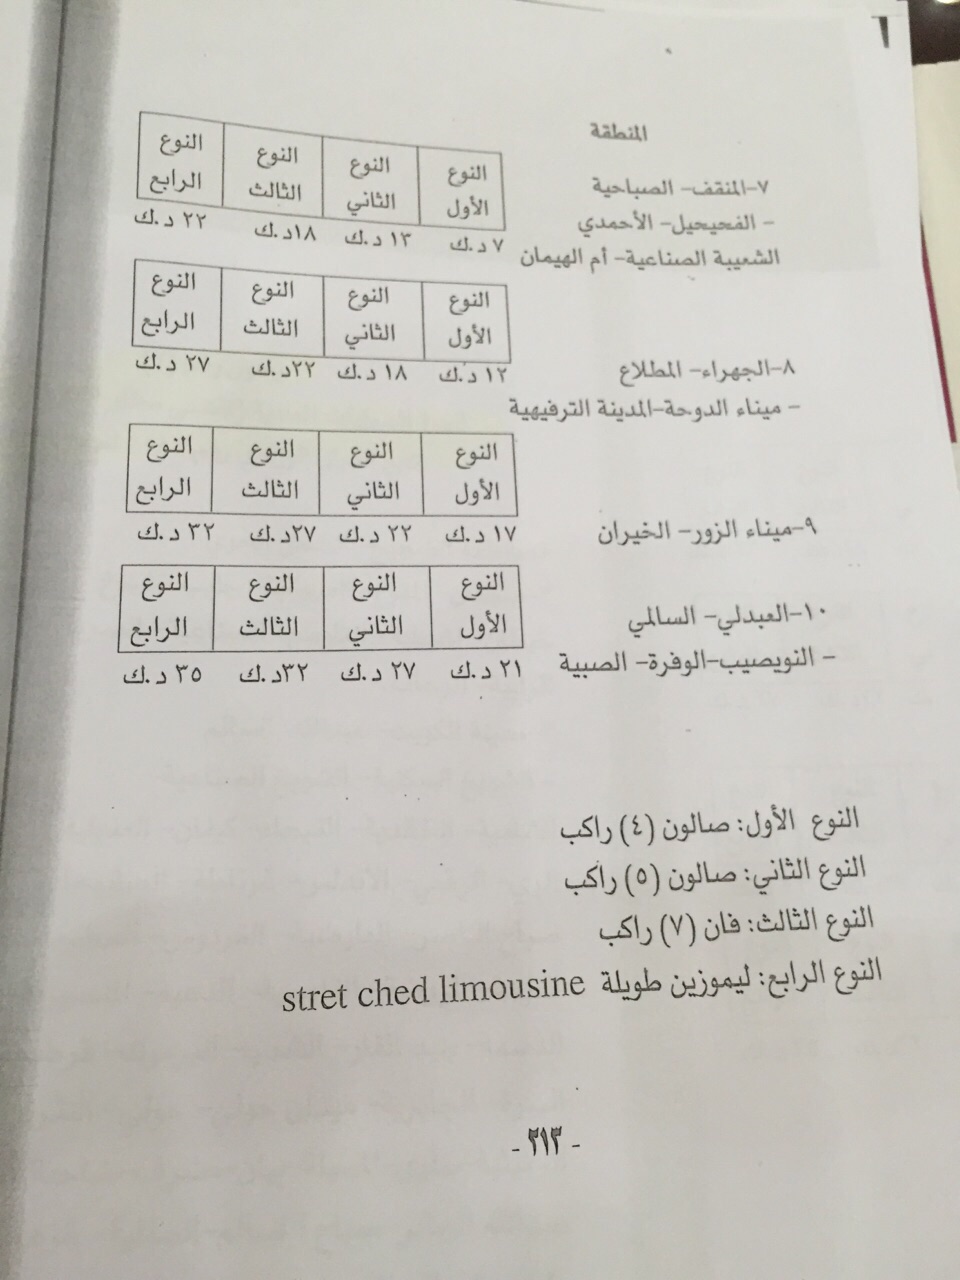 المنطقة
٧-المنقف- الصباحية
- الفحيحيل- الأحمدي
الشعيبة الصناعية- أم الهيمان
النوع النوع النوع النوع
الأول الثاني الثالث الرابع
٧ د.ك ١٣ د.ك ١٨د.ك ٢٢ د.ك
٨-الجهراء- المطلاع
- ميناء الدوحة-المدينة الترفيهية
النوع النوع النوع النوع
الأول الثاني الثالث الرابع
١٢ د.ك ١٨ د.ك ٢٢د.ك ٢٧ د.ك
٩-ميناء الزور- الخيران
النوع النوع النوع النوع
الأول الثاني الثالث الرابع
١٧ د.ك ٢٢ د.ك ٢٧د.ك ٣٢ د.ك
١٠-العبدلي- السالمي
- النويصيب-الوفرة- الصبية
النوع النوع النوع النوع
الأول الثاني الثالث الرابع
٢١ د.ك ٢٧ د.ك ٣٢د.ك ٣٥ د.ك
النوع الأول: صالون (٤) راكب
النوع الثاني: صالون (٥) راكب
النوع الثالث: فان (٧) راكب
النوع الرابع: ليموزين طويلة stret ched limousine
- ٢١٣ -